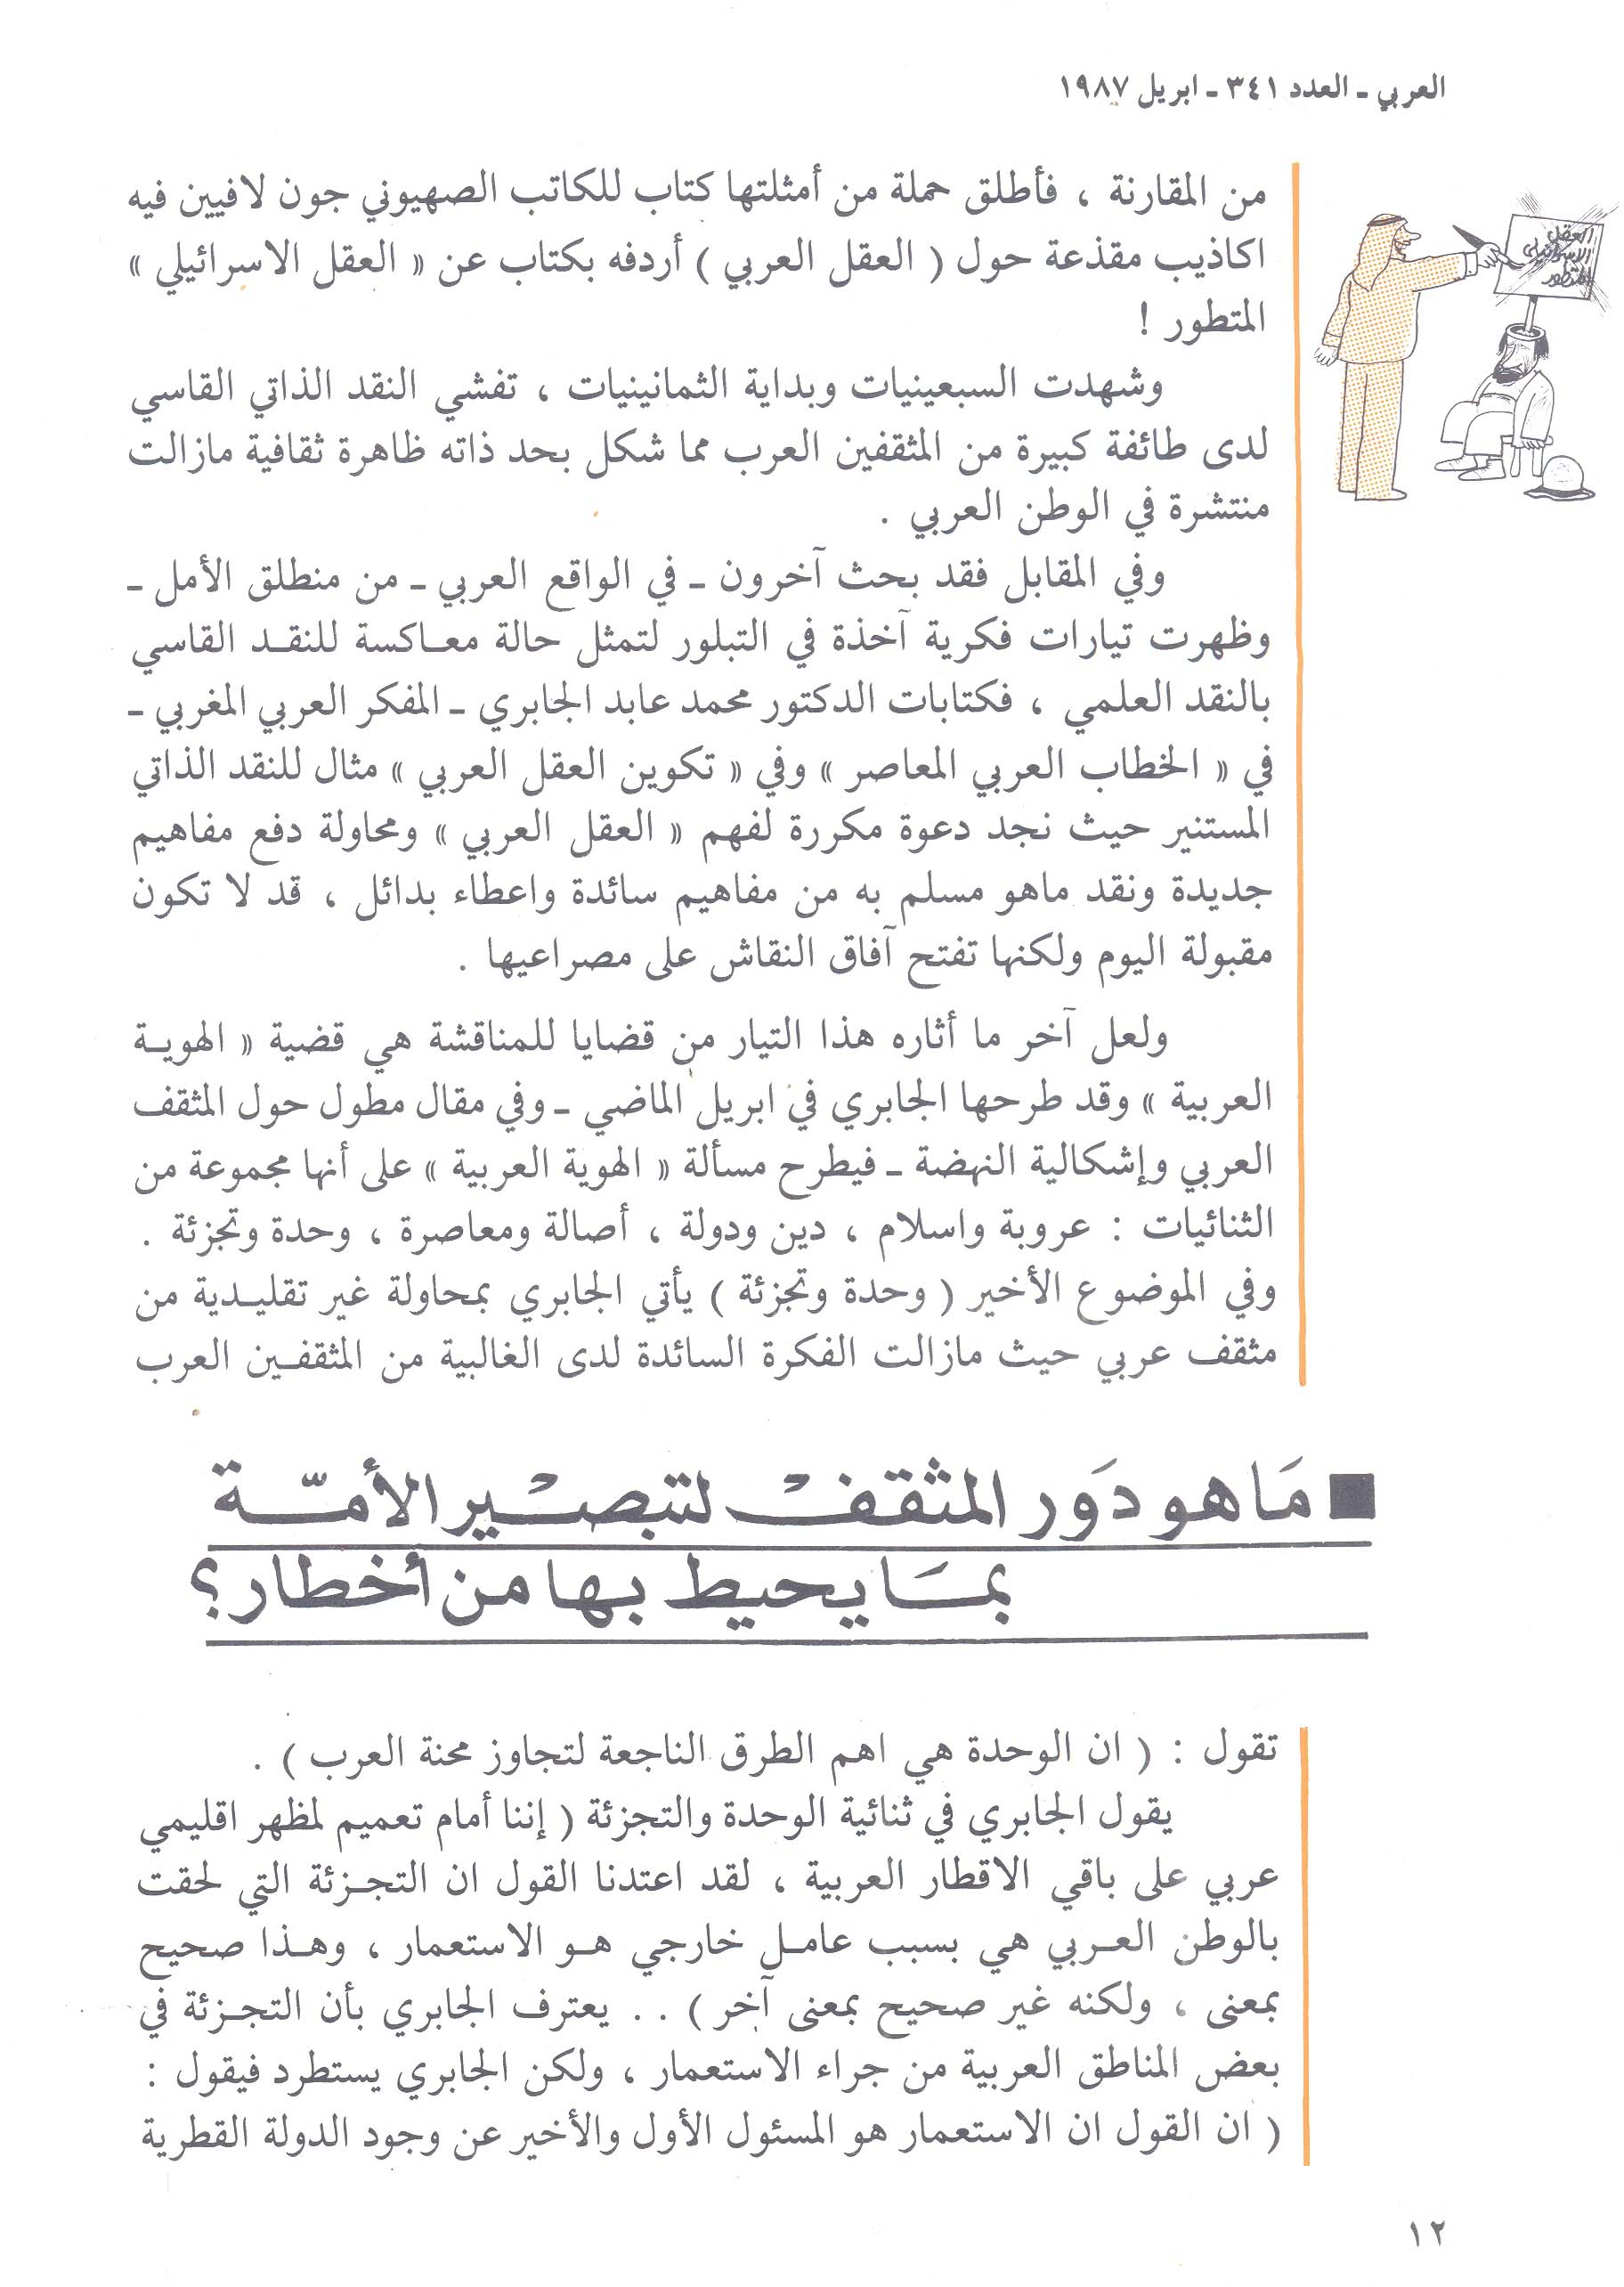 العربي ـ العدد ٣٤١ ـ ابريل ١٩٨٧
من المقارنة ، فأطلق حملة من أمثلتها كتاب للكاتب الصهيوني جون لافيين فيه
اكاذيب مقذعة حول ( العقل العربي ) أردفه بكتاب عن « العقل الاسرائيلي »
المتطور !
العقل
الاسرائيلي
المتطور
وشهدت السبعينيات وبداية الثمانينيات ، تفشي النقد الذاتي القاسي
لدى طائفة كبيرة من المثقفين العرب مما شكل بحد ذاته ظاهرة ثقافية مازالت
منتشرة في الوطن العربي .
وفي المقابل فقد بحث آخرون ـ في الواقع العربي ـ من منطلق الأمل ـ
وظهرت تيارات فكرية آخذة في التبلور لتمثل حالة معاكسة للنقد القاسي
بالنقد العلمي ، فكتابات الدكتور محمد عابد الجابري ـ المفكر العربي المغربي ـ
في « الخطاب العربي المعاصر » وفي « تكوين العقل العربي » مثال للنقد الذاتي
المستنير حيث نجد دعوة مكررة لفهم « العقل العربي » ومحاولة دفع مفاهيم
جديدة ونقد ماهو مسلم به من مفاهيم سائدة واعطاء بدائل ، قد لا تكون
مقبولة اليوم ولكنها تفتح آفاق النقاش على مصراعيها .
ولعل آخر ما أثاره هذا التيار من قضايا للمناقشة هي قضية « الهوية
العربية » وقد طرحها الجابري في ابريل الماضي ـ وفي مقال مطول حول المثقف
العربي وإشكالية النهضة ـ فيطرح مسألة « الهوية العربية » على أنها مجموعة من
الثنائيات : عروبة واسلام ، دين ودولة ، أصالة ومعاصرة ، وحدة وتجزئة .
وفي الموضوع الأخير ( وحدة وتجزئة ) يأتي الجابري بمحاولة غير تقليدية من
مثقف عربي حيث مازالت الفكرة السائدة لدى الغالبية من المثقفين العرب
■ مَا هو دَور المثقفْ لتبصْير الأمّة
بمَا يحيط بها من أخطار؟
تقول : ( ان الوحدة هي اهم الطرق الناجعة لتجاوز محنة العرب ) .
يقول الجابري في ثنائية الوحدة والتجزئة ( إننا أمام تعميم لمظهر اقليمي
عربي على باقي الاقطار العربية ، لقد اعتدنا القول ان التجزئة التي لحقت
بالوطن العربي هي بسبب عامل خارجي هو الاستعمار ، وهذا صحيح
بمعنى ، ولكنه غير صحيح بمعنى آخر ) . . يعترف الجابري بأن التجزئة في
بعض المناطق العربية من جراء الاستعمار ، ولكن الجابري يستطرد فيقول :
( ان القول ان الاستعمار هو المسئول الأول والأخير عن وجود الدولة القطرية
١٢